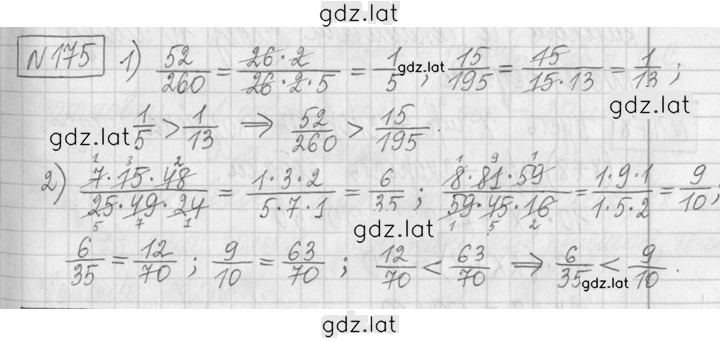 gdz.lat
N 175 1) 52/260 = 26·2/26·2·5 = 1/5 ; 15/195 = 15/15·13 = 1/13 ;
gdz.lat
gdz.lat
1/5 > 1/13 ⇒ 52/260 > 15/195 .
gdz.lat
2) 7·15·48/25·49·24 = 1·3·2/5·7·1 = 6/35 ; 8·81·59/59·45·16 = 1·9·1/1·5·2 = 9/10 ;
gdz.lat
6/35 = 12/70 ; 9/10 = 63/70 ; 12/70 < 63/70 ⇒ 6/35 < 9/10 .
gdz.lat
gdz.lat